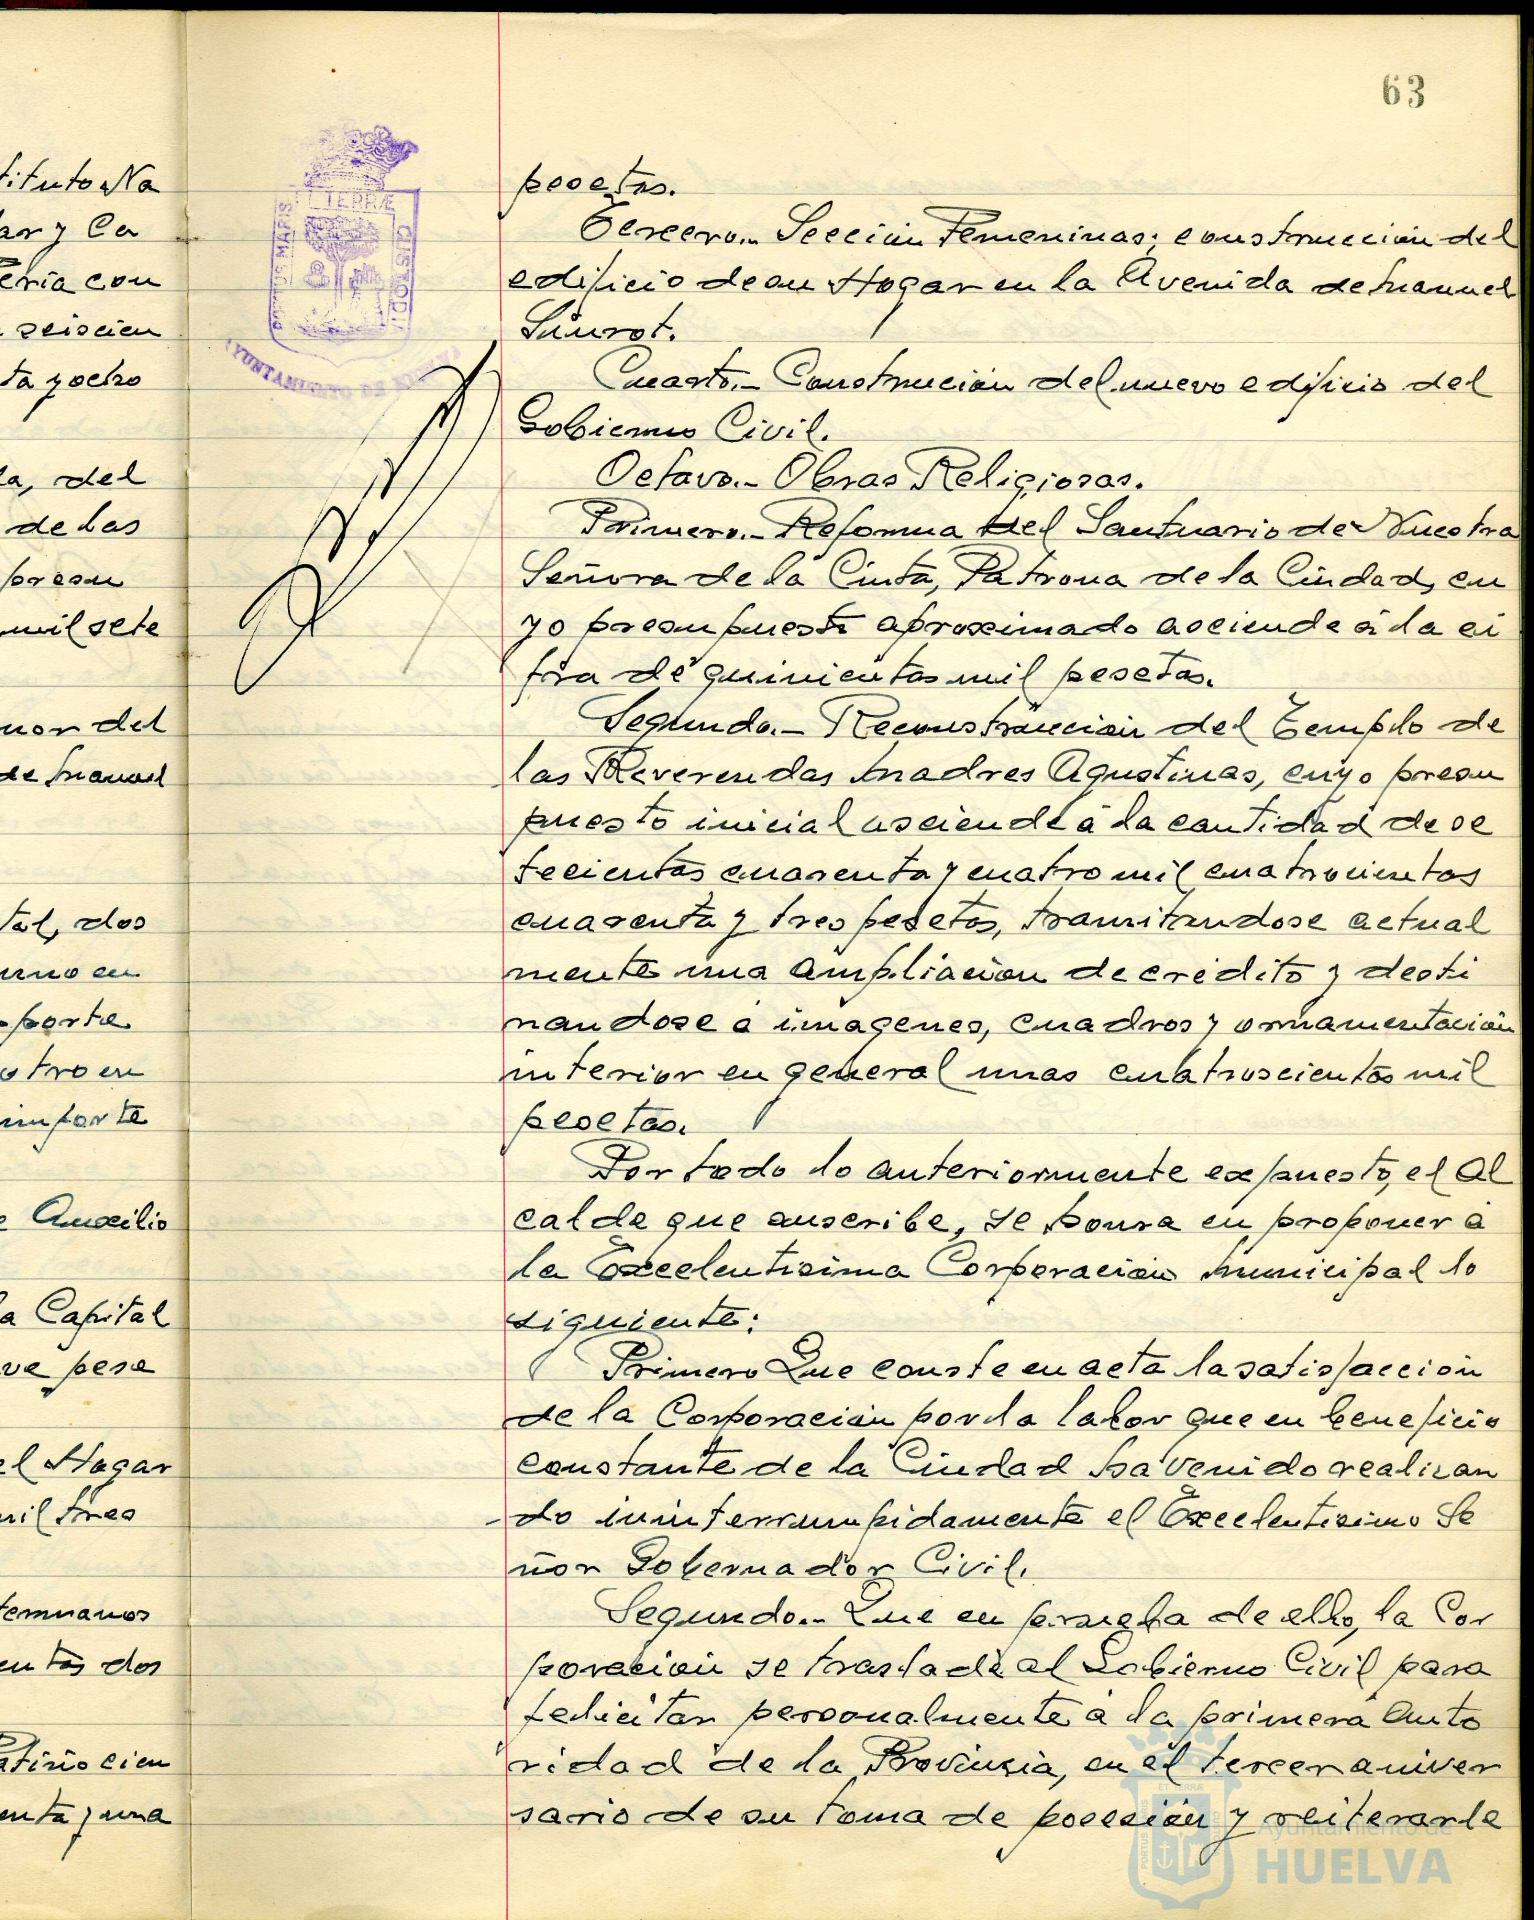 63
tituto Na
ar y Ca
ería con
seiscien
ta y ocho
la, del
de las
presu
mil sete
nor del
de Manuel
tal, dos
uno en
porte
otro en
importe
Auxilio
a Capital
ve pese
el Hogar
mil tres
ternanos
entos dos
Patiño cien
enta y una
PORTUS MARIS ET TERRÆ CUSTODIA
AYUNTAMIENTO DE HUELVA
pesetas.
Tercero.- Sección Femeninas; construcción del
edificio de su Hogar en la Avenida de Manuel
Siurot.
Cuarto.- Construción del nuevo edificio del
Gobierno Civil.
Octavo.- Obras Religiosas.
Primero.- Reforma del Santuario de Nuestra
Señora de la Cinta, Patrona de la Ciudad, cu
yo presupuesto aproximado asciende á la ci
fra de quinientas mil pesetas.
Segundo.- Reconstrucción del Templo de
las Reverendas Madres Agustinas, cuyo presu
puesto inicial asciende á la cantidad de se
tecientas cuarenta y cuatro mil cuatrocientas
cuarenta y tres pesetas, tramitandose actual
mente una ampliación de crédito y desti
nandose á imagenes, cuadros y ornamentación
interior en general unas cuatroscientas mil
pesetas.
Por todo lo anteriormente expuesto, el Al
calde que suscribe, se honra en proponer á
la Excelentisima Corporación Municipal lo
siguiente:
Primero Que conste en acta la satisfacción
de la Corporación por la labor que en beneficio
constante de la Ciudad ha venido realizan
do ininterrumpidamente el Excelentisimo Se
ñor Gobernador Civil.
Segundo.- Que en prueba de ello, la Cor
poración se traslade al Gobierno Civil para
felicitar personalmente á la primera Auto
ridad de la Provincia, en el tercer aniver
sario de su toma de posesión y reiterarle
Ayuntamiento de
HUELVA